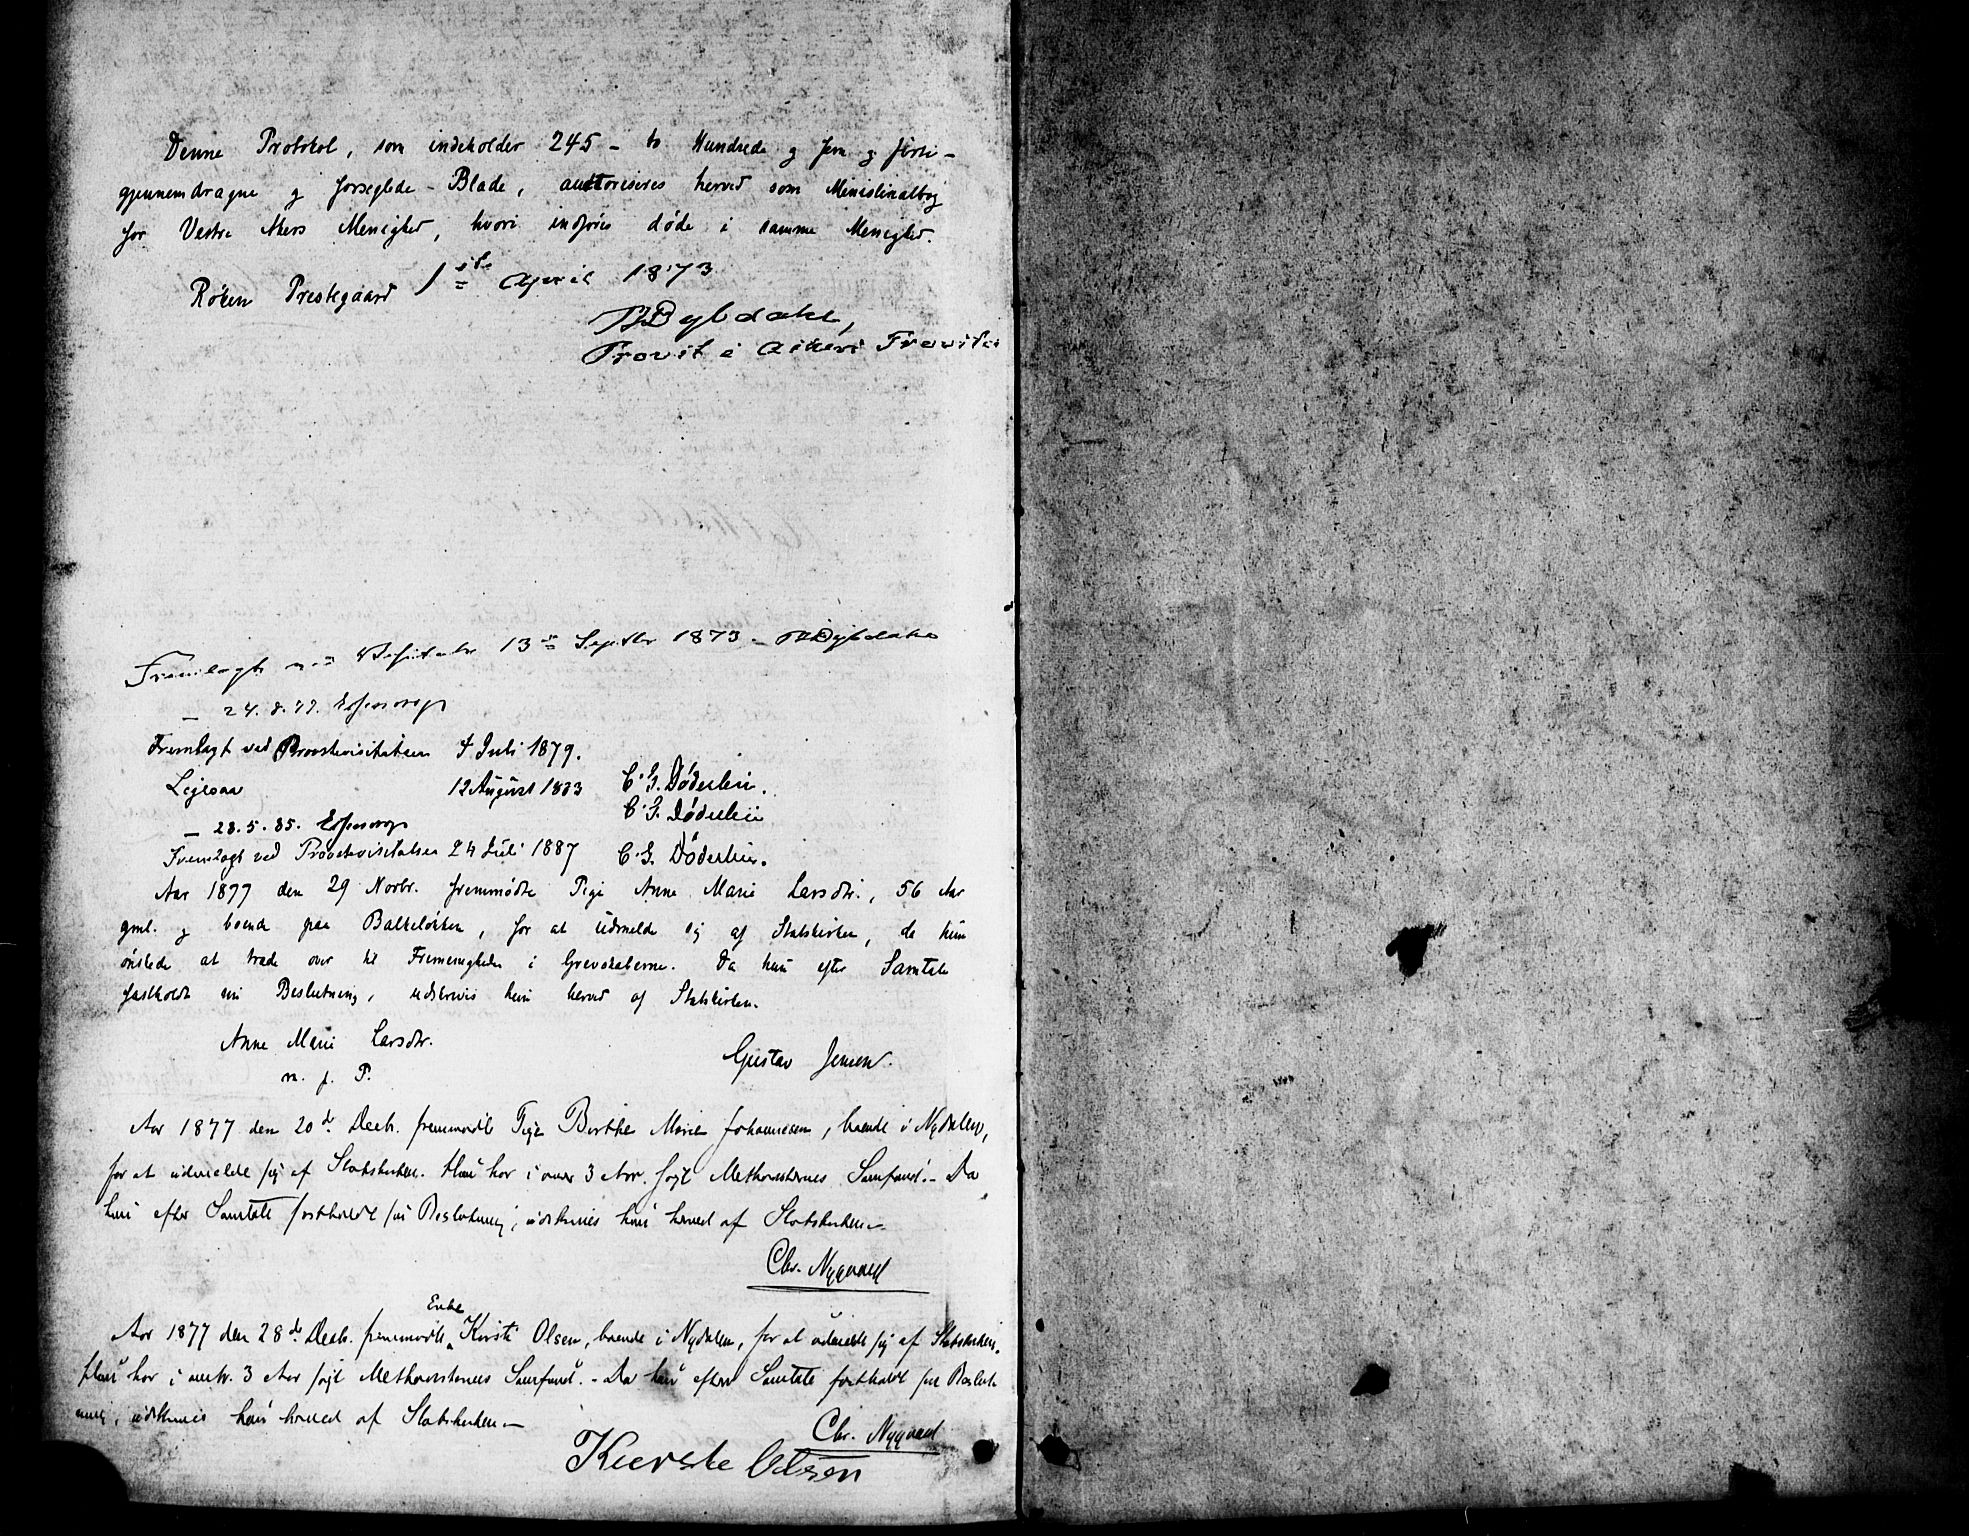 Denne Protokol, som indeholder 245 - to Hundrede og fem og førti -
gjennemdragne og forseglede - Blade, auttoriseres herved som Ministerialbog
for Vestre Akers Menighed, hvori indføres døde i samme Menighed.
Røken Prestegaard 1ste April 1873
Provst i Akers Provsti
Fremlagt ved Visitats 13de Septbr 1873 -
Fremlagt ved Provstevisitatsen 4 Juli 1879.
Ligesaa 12 August 1883 C. G. Døderlein.
C. G. Døderlein
_ 28.5.85.
Fremlagt ved Provstevisitatsen 24 Juli 1887 C. G. Døderlein.
Aar 1877 den 29 Novbr. fremmødte Pige Anne Marie Larsdtr., 56 Aar
gml. og boende paa Balkeløkken, for at udmelde sig af Statskirken, da hun
ønskede at træde over til Frimenigheden i Grevskaberne. Da hun efter Samtale
fastholdt sin Beslutning, udskrives hun herved af Statskirken.
Anne Marie Larsdtr.
m. f. P.
Gustav Jensen.
Aar 1877 den 20de Decb. fremmødte Pige Birthe Marie Johannesen, boende i Nydalen,
for at udmelde sig af Statskirken. Hun har i over 3 Aar søgt Methodisternes Samfund. - Da
hun efter Samtale fastholdt sin Beslutning, udskrives hun herved af Statskirken. -
Chr. Nygaard
Enke
Aar 1877 den 28de Decb. fremmødte Kirsti Olsen, boende i Nydalen, for at udmelde sig af Statskirken.
Hun har i omtr. 3 Aar søgt Methodisternes Samfund. - Da hun efter Samtale fastholdt sin Beslut-
ning, udskrives hun herved af Statskirken. -
Chr. Nygaard
Kierste Olsen